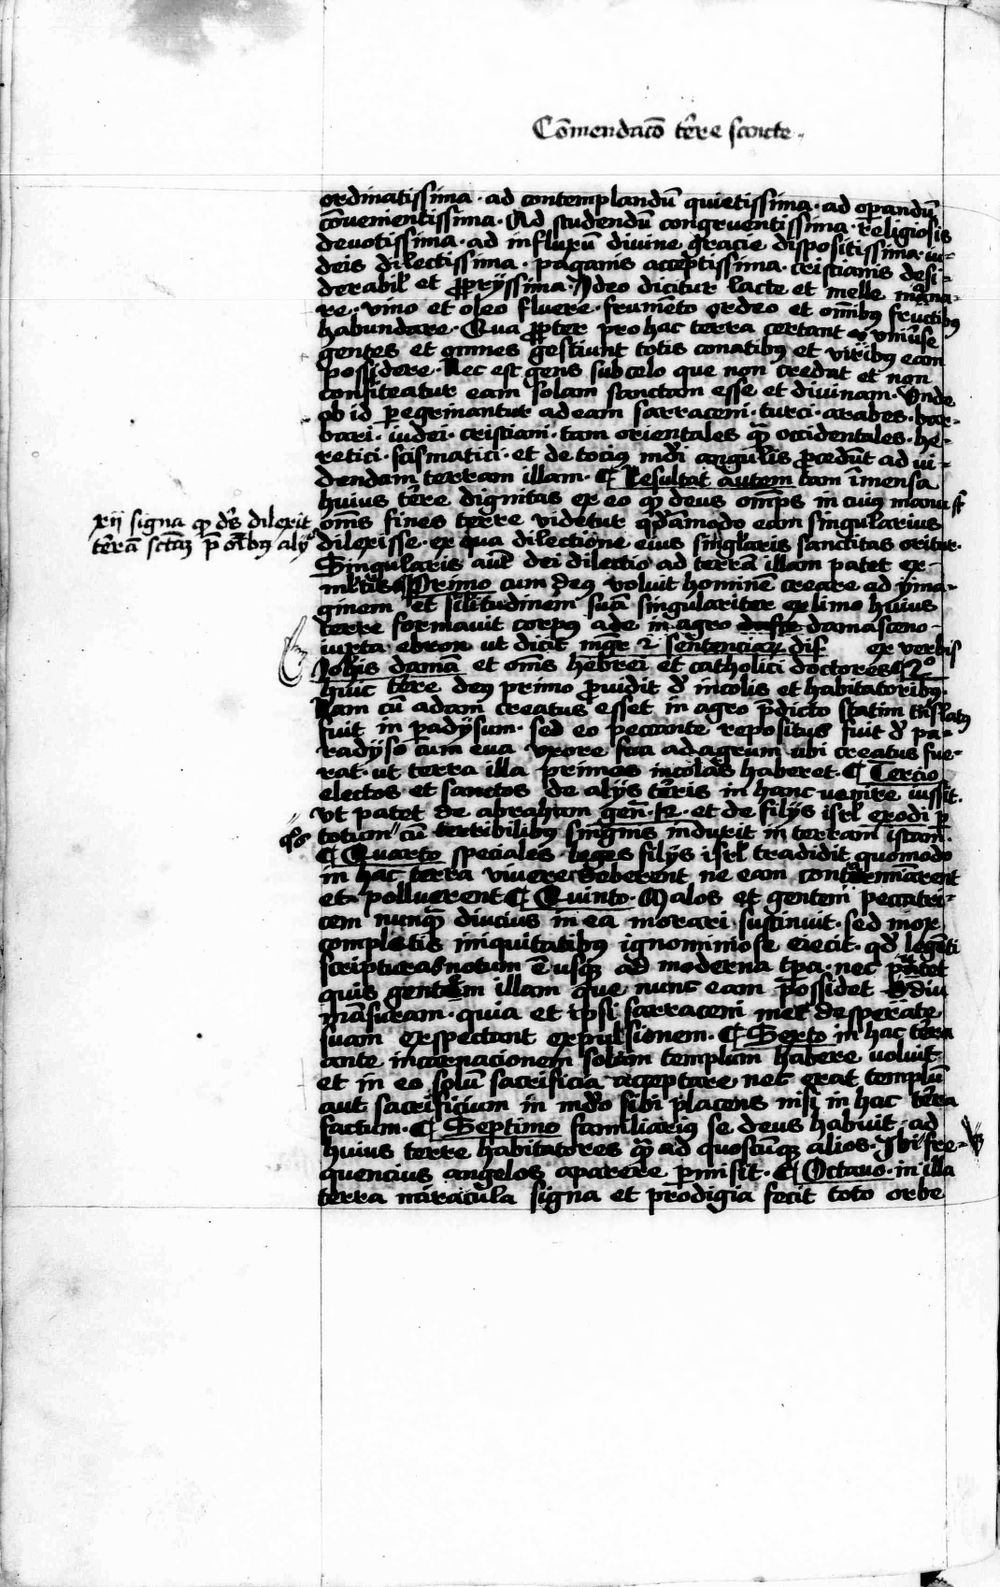 Com̄endac̄o tr̄e sancte
ordinatissima · ad contemplandū quietissima · ad op̄andū
cōuenientissima · Ad studendū congruentissima · Religiosis
deuotissima · ad influxū diuine gracie dispositissima · iu-
deis dilectissima · paganis acceptissima · cristianis desi-
derabil' et ꝓprijssima · Adeo dicitur lacte et melle mana-
re · vino et oleo fluere · frumēto ordeo et om̄ibꝰ fructibꝰ
habundare · Qua ꝓpter pro hac terra certant vniūse
gentes et omnes gestiunt totis conatibꝰ et viribꝰ eam
possidere · Nec est gens sub celo que non credat et non
confiteatur eam solam sanctam esse et diuinam · Vnde
ob id peregrinantur ad eam sarraceni · turci · arabes · bar-
bari · iudei · cristiani · tam orientales qͣ occidentales · he-
retici · scismatici · et de tociꝰ mūdi angulis ꝓcedūt ad vi-
dendam terram illam · ¶ Resultat autem tam īmensa
huius tr̄e dignitas ex eo qꝫ deus om̄ps in cuiꝰ manu st̄
om̄s fines terre videtur qͦdāmodo eam singularius
xii signa qꝫ dꝰs dilexit
tērā sctāꝫ p̄ oībꝰ alijs
dilexisse · ex qua dilectione eius singlaris sanctitas oritur ·
Singularis aut̄ dei dilectio ad terrā illam patet ex
ml'tis ¶ Primo cum deꝰ voluit hominē creare ad yma-
ginem et sil'itudinem suā singulariter ex limo huius
terre formauit corpꝰ ade in agro damasceno ·
iuxta ebron ut dicit mḡr 2 sentenciaꝝ dis̄ ex verbis
Joh̄is damas̄ et om̄s hebrei et catholici doctores ¶ 2º
huic tr̄e deꝰ primo ꝓuidit de incolis et habitatoribꝰ ·
Nam cū adam creatus esset in agro p̄dicto statim trn̄slatꝰ
fuit in padysum · sed eo peccante repositus fuit de pa-
radyso cum eua vxore sua ad agrum ubi creatus fue-
rat · ut terra illa primos incolas haberet · ¶ Tercio
electos et sanctos de alijs tr̄is in hanc venire iussit ·
Vt patet de abraham gen̄ · et de filijs isrl' exodi p̄
totum cū terribilibꝰ singnis induxit in terram istam ·
¶ Quarto speciales leges filijs isrl' tradidit quomodo
in hac terra viuere deberent ne eam contaminarent
et polluerent ¶ Quinto Malos et gentem peccatri-
cem nunqͣ diucius in ea morari sustinuit · sed mox
completis iniquitatibꝰ ignominiose eiecit · qd' legēti
scripturas notum ē usqꝫ ad moderna tp̄a · nec putet
quis gentem illam que nunc eam possidet diu
māsuram · quia et ipsi sarraceni met desperate
suam exspectant expulsionem · ¶ Sexto in hac tr̄ra
ante incarnacionem solam templum habere voluit
et in eo solū sacrificia acceptare nec erat templū
aut sacrificium in mūdo sibi placens nisi in hac tr̄ra
factum · ¶ Septimo familiariꝰ se deus habuit ad
huius terre habitatores qͣ ad quoscūqꝫ alios · Ibi fre-
quencius angelos aparere p̄misit · ¶ Octauo · in illa
terra miracula signa et prodigia fecit toto orbe